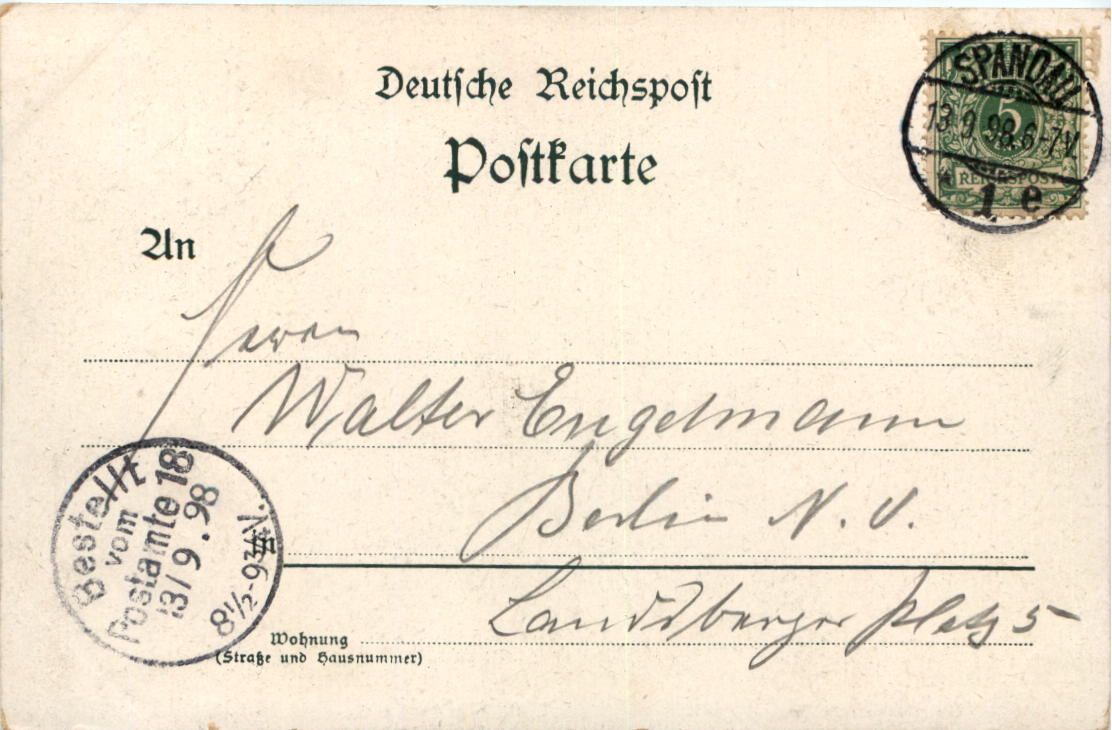 Deutsche Reichspost
Postkarte
SPANDAU
13.9.98.6-7V.
* 1 e
5
REICHSPOST
An
Herrn
Walter Engelmann
Berlin N. O.
in
Landsberger Platz 5
Wohnung
(Straße und Hausnummer)
Bestellt
vom
Postamte 18
13/9.98
8½-93/4V.